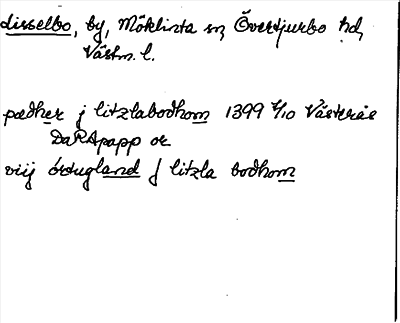 disselbo, by, Möklinta sn, Övertjurbo hd,
Västm. l.
pædher j litzlabodhom 1399 2/10 Västerås
DaRApapp or
viij örtugland j litzla bodhom